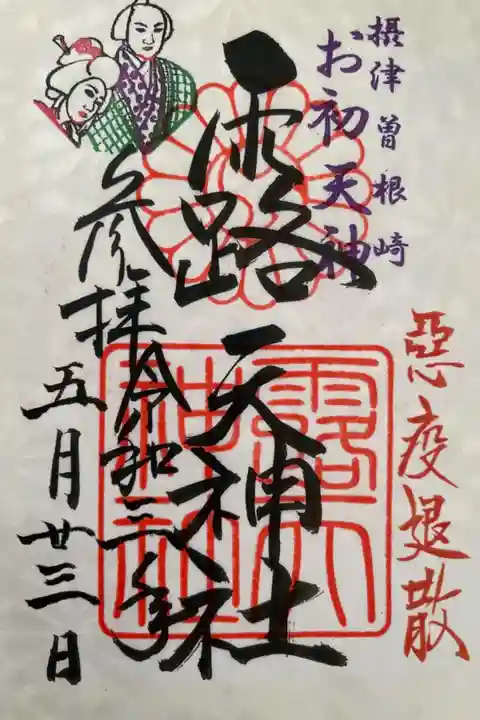 摂津曽根崎
お初天神
惡疫退散
露天神社
露天神社
参拝
令和二年
五月廿三日